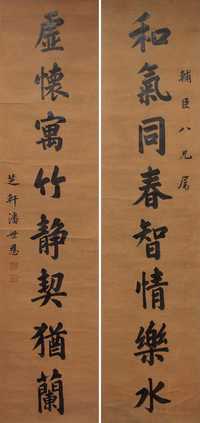 和氣同春智情樂水
輔臣八兄屬
虛懷寓竹靜契猶蘭
芝軒潘世恩